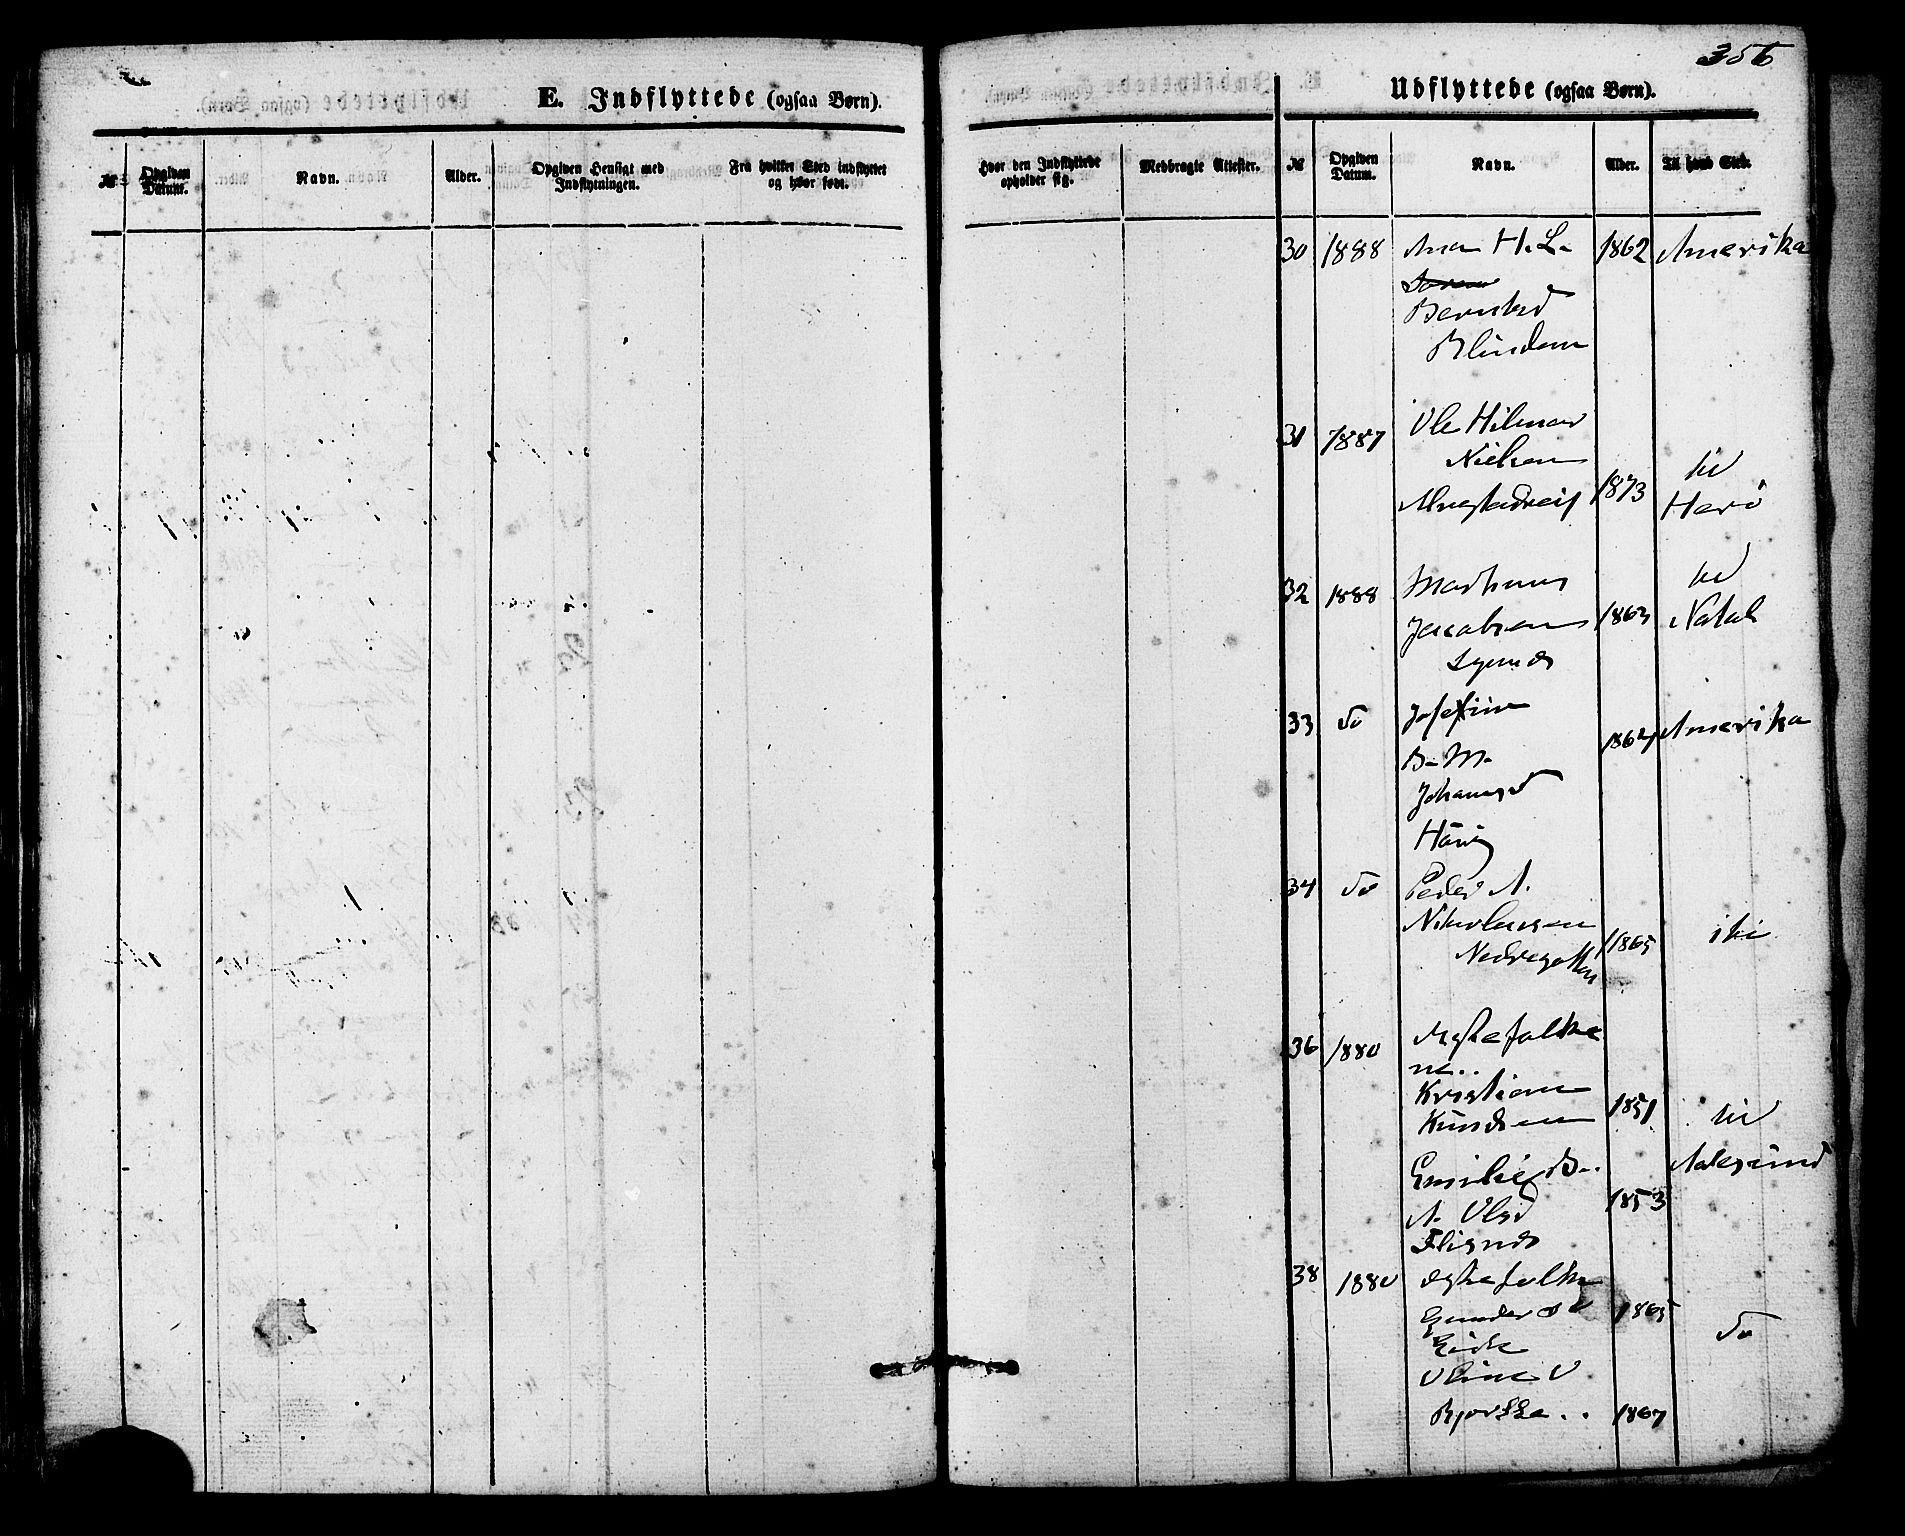 356
E. Indflyttede (ogsaa Børn).
Udflyttede (ogsaa Børn).
№ Opgiven Datum. Navn. Alder. Opgiven Hensigt med Indflytningen. Fra hvilket Sted indflyttet og hvor født.
Hvor den Indflyttede opholder sig. Medbragte Attester. № Opgiven Datum. Navn. Alder. Til hvad Sted.
30 1888 Ana H. L. 1862 Amerika
Berntsd
Blindem
31 1887 Ole Hilmar
Nielsen til
1873 Herö
32 1888 Martinus til
Jacobsen 1863 Natal
33 do Josefine
B. M. 1864 Amerika
Johansd
34 do Peder A.
Nikolausen 1865
36 1880 Ægtefolke
ne..
Kristian
Knudsen 1851 til
Emilie B.. Aalesund
A. Olsd 1853
Flisnes
38 1880 Ægtefolk
Gunder 1865
do
1867